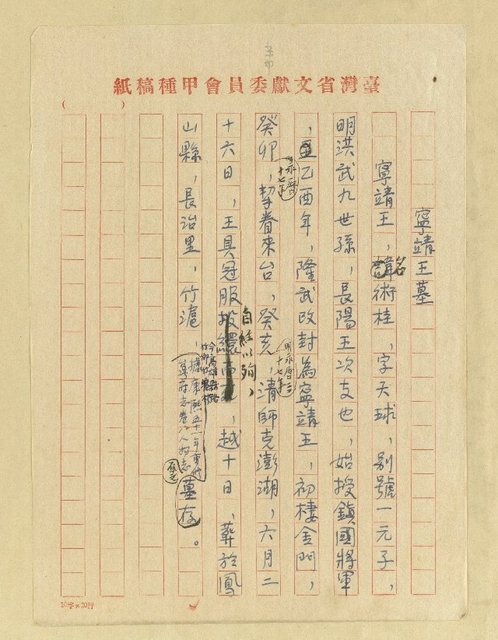 臺灣省文獻委員會甲種稿紙
寧靖王墓
寧靖王,名術桂,字天球,别號一元子,
明洪武九世孫,長陽王次支也,始授鎮國將軍
,乙酉年,隆武改封為寧靖王,初棲金門,
癸卯,挈眷來台,癸亥,清師克澎湖,六月二
十六日,王具冠服自經以殉,越十日,葬於鳳
山縣,長治里,竹滬,墓存。